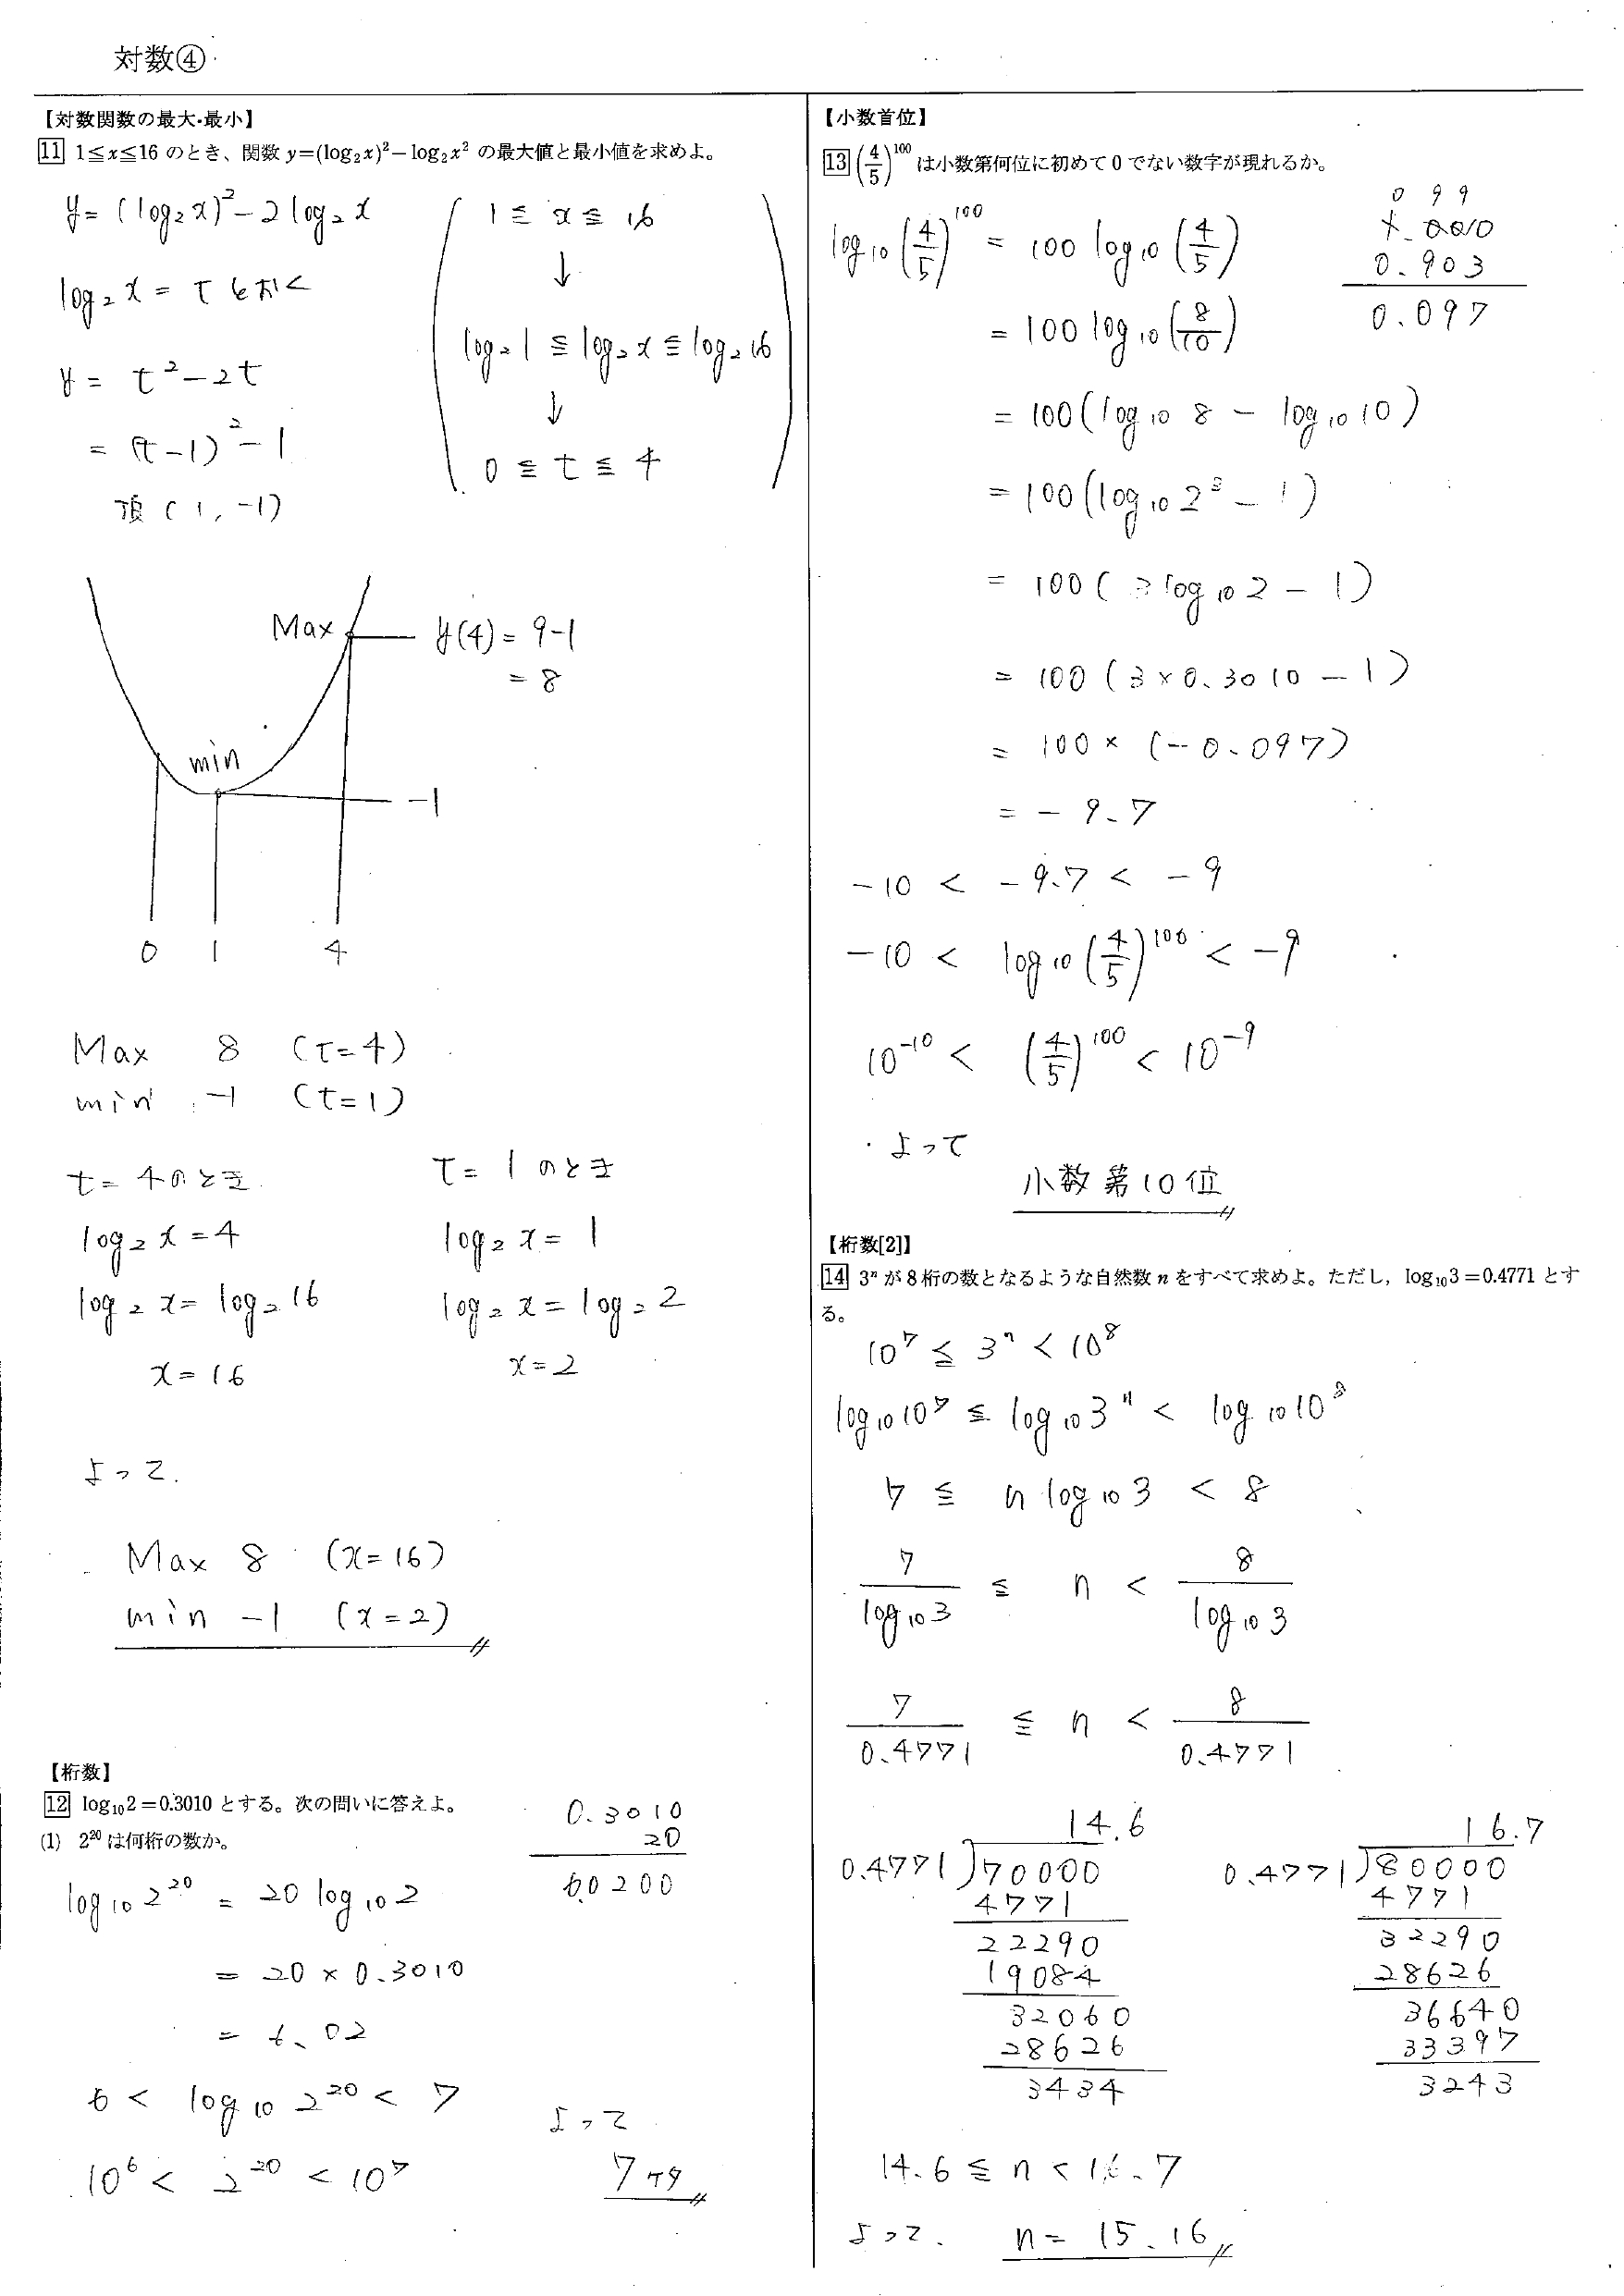 対数④
【対数関数の最大・最小】
11 1≦x≦16 のとき、関数 y=(log₂x)²−log₂x² の最大値と最小値を求めよ。
y= (log₂x)²−2log₂x
log₂x = t とおく
y = t²−2t
= (t−1)²−1
頂(1, −1)
1 ≦ x ≦ 16
↓
log₂1 ≦ log₂x ≦ log₂16
↓
0 ≦ t ≦ 4
Max y(4) = 9−1
= 8
min −1
0 1 4
Max 8 (t=4)
min −1 (t=1)
t= 4のとき
log₂x = 4
log₂x = log₂16
x = 16
t= 1のとき
log₂x = 1
log₂x = log₂2
x=2
よって.
Max 8 (x=16)
min −1 (x=2)
【桁数】
12 log₁₀2=0.3010 とする。次の問いに答えよ。
(1) 2²⁰ は何桁の数か。
0.3010
20
6.0200
log₁₀2²⁰ = 20 log₁₀2
= 20 × 0.3010
= 6.02
6 < log₁₀2²⁰ < 7
10⁶ < 2²⁰ < 10⁷
よって
7桁
【小数首位】
13 (4/5)¹⁰⁰ は小数第何位に初めて 0 でない数字が現れるか。
0 9 9
1.000
0.903
0.097
log₁₀(4/5)¹⁰⁰ = 100 log₁₀(4/5)
= 100 log₁₀(8/10)
= 100(log₁₀8 − log₁₀10)
= 100(log₁₀2³ − 1)
= 100(3log₁₀2 − 1)
= 100(3×0.3010 − 1)
= 100 × (−0.097)
= −9.7
−10 < −9.7 < −9
−10 < log₁₀(4/5)¹⁰⁰ < −9
10⁻¹⁰ < (4/5)¹⁰⁰ < 10⁻⁹
よって
小数第10位
【桁数[2]】
14 3ⁿ が 8 桁の数となるような自然数 n をすべて求めよ。ただし，log₁₀3=0.4771 とす
る。
10⁷ ≦ 3ⁿ < 10⁸
log₁₀10⁷ ≦ log₁₀3ⁿ < log₁₀10⁸
7 ≦ n log₁₀3 < 8
7/log₁₀3 ≦ n < 8/log₁₀3
7/0.4771 ≦ n < 8/0.4771
14.6
0.4771)70000
4771
22290
19084
32060
28626
3434
16.7
0.4771)80000
4771
32290
28626
36640
33397
3243
14.6 ≦ n < 16.7
よって. n = 15.16